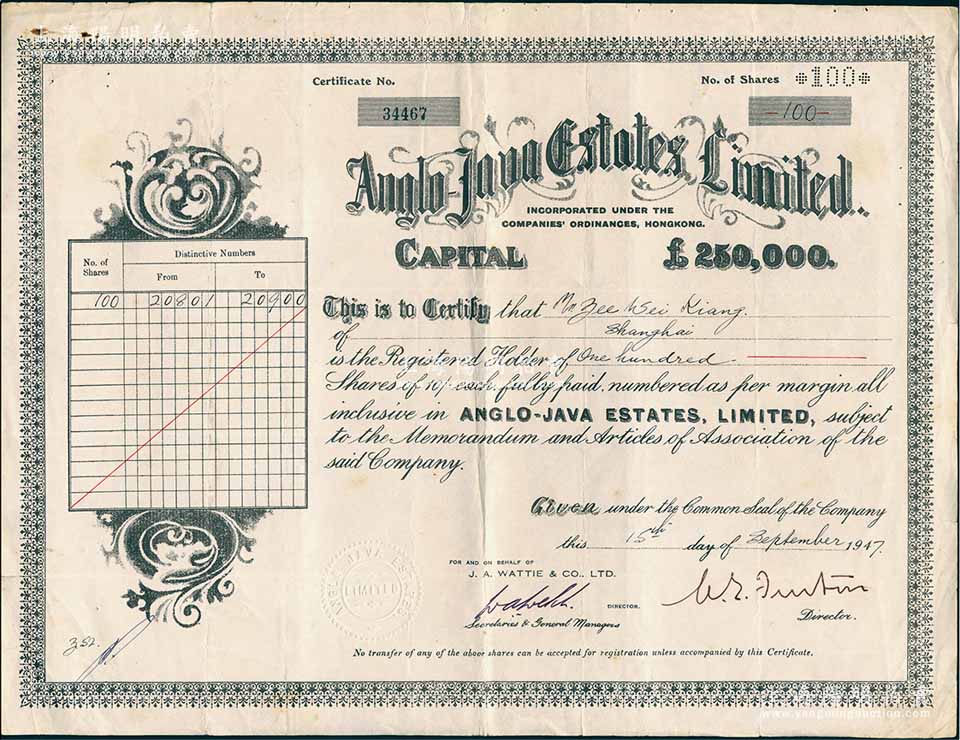 Certificate No.
34467
No. of Shares *100*
—100—
Anglo-Java Estates, Limited.
INCORPORATED UNDER THE
COMPANIES' ORDINANCES, HONGKONG.
CAPITAL £250,000.
No. of Shares
Distinctive Numbers
From To
100 20801 20900
This is to Certify that Mr. Zee Wei Kiang.
of Shanghai
is the Registered Holder of One hundred
Shares of 10/- each, fully paid, numbered as per margin all
inclusive in ANGLO-JAVA ESTATES, LIMITED, subject
to the Memorandum and Articles of Association of the
said Company.
Given under the Common Seal of the Company
this 15th day of September 1947.
FOR AND ON BEHALF OF
J. A. WATTIE & CO., LTD.
DIRECTOR.
Secretaries & General Managers
Director.
ANGLO-JAVA ESTATES
LIMITED
352.
No transfer of any of the above shares can be accepted for registration unless accompanied by this Certificate.
www.yangmingauction.com